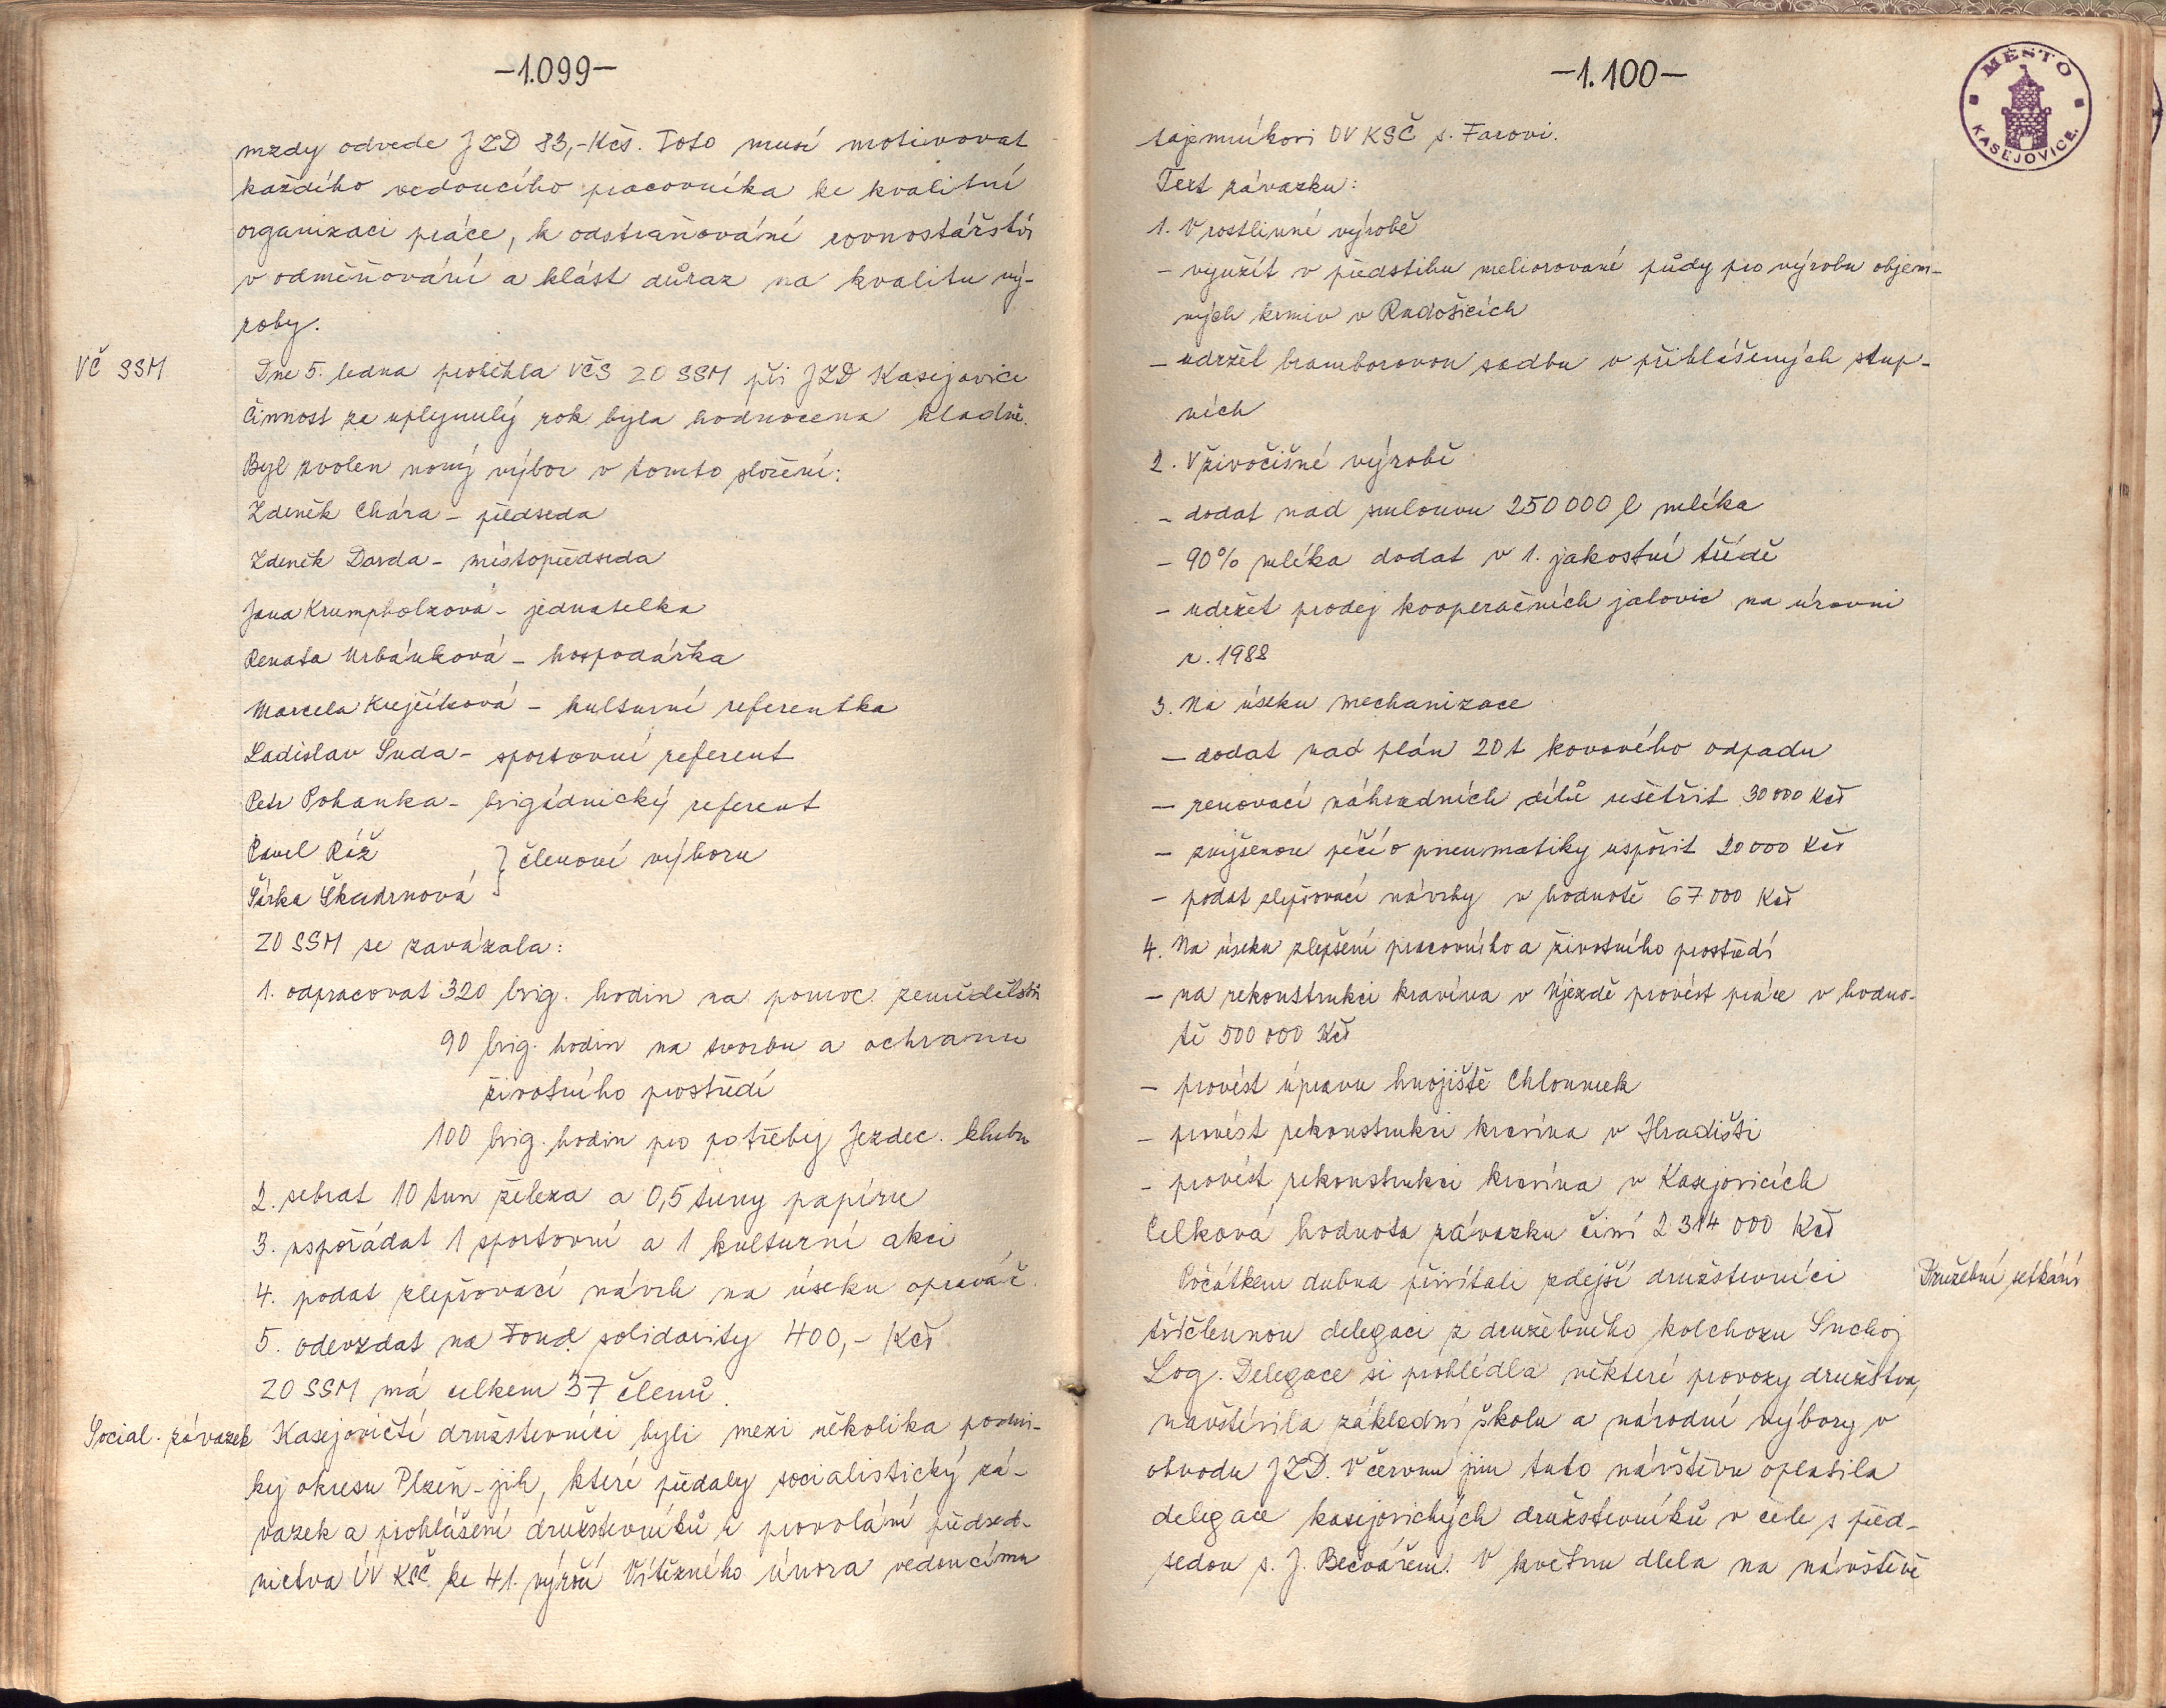 -1.099-
mzdy odvede JZD 83,-Kčs. Toto musí motivovat
každého vedoucího pracovníka ke kvalitní
organizaci práce, k odstraňování rovnostářství
v odměňování a klást důraz na kvalitu vý-
roby.
VČ SSM
Dne 5. ledna proběhla VČS ZO SSM při JZD Kasejovice
Činnost za uplynulý rok byla hodnocena kladně.
Byl zvolen nový výbor v tomto složení:
Zdeněk Chára - předseda
Zdeněk Darda - místopředseda
Jana Krumpholzová - jednatelka
Renata Urbánková - hospodářka
Marcela Krejčíková - kulturní referentka
Ladislav Suda - sportovní referent
Petr Pohanka - brigádnický referent
Pavel Réž
} členové výboru
Šárka Škudrnová
ZO SSM se zavázala:
1. odpracovat 320 brig. hodin na pomoc zemědělství
90 brig. hodin na tvorbu a ochranu
životního prostředí
100 brig. hodin pro potřeby Jezdec. klubu
2. sebrat 10 tun železa a 0,5 tuny papíru
3. uspořádat 1 sportovní a 1 kulturní akci
4. podat zlepšovací návrh na úseku opraváč.
5. odevzdat na Fond solidarity 400,- Kčs
ZO SSM má celkem 37 členů.
Social. závazek
Kasejovičtí družstevníci byli mezi několika podni-
ky okresu Plzeň-jih, které předaly socialistický zá-
vazek a prohlášení družstevníků k provolání předsed-
nictva ÚV KSČ ke 41. výročí Vítězného února vedoucímu
-1.100-
MĚSTO
KASEJOVICE.
tajemníkovi OV KSČ s. Farovi.
Text závazku:
1. V rostlinné výrobě
- využít v předstihu meliorované půdy pro výrobu objem-
ných krmiv v Radošicích
- udržet bramborovou sadbu v přihlášených stup-
ních
2. V živočišné výrobě
- dodat nad smlouvu 250 000 l mléka
- 90% mléka dodat v 1. jakostní třídě
- udržet prodej kooperačních jalovic na úrovni
r. 1988
3. Na úseku mechanizace
- dodat nad plán 20 t kovového odpadu
- renovací náhradních dílů ušetřit 30 000 Kčs
- zvýšenou péčí o pneumatiky uspořit 20 000 Kčs
- podat zlepšovací návrhy v hodnotě 67 000 Kčs
4. Na úseku zlepšení pracovního a životního prostředí
- na rekonstrukci kravína v Újezdě provést práce v hodno-
tě 500 000 Kčs
- provést úpravu hnojiště Chloumek
- provést rekonstrukci kravína v Hradišti
- provést rekonstrukci kravína v Kasejovicích
Celková hodnota závazku činí 2 314 000 Kčs
Družební setkání
Počátkem dubna přivítali zdejší družstevníci
tříčlennou delegaci z družebného kolchozu Suchoj
Log. Delegace si prohlédla některé provozy družstva,
navštívila základní školu a národní výbory v
obvodu JZD. V červnu jim tuto návštěvu oplatila
delegace kasejovických družstevníků v čele s před-
sedou s. J. Bečvářem. V květnu dlela na návštěvě